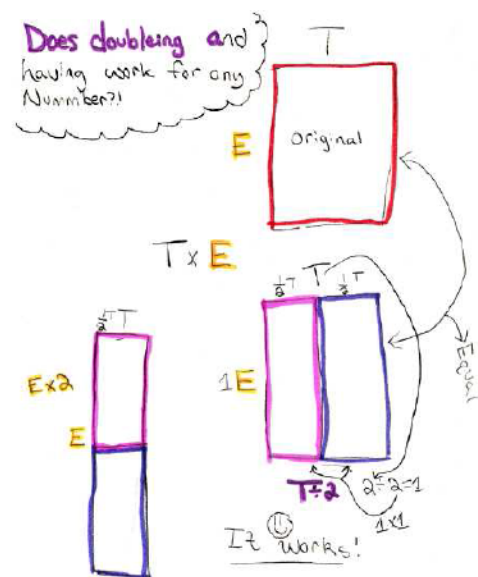 Does doubleing and
having work for any
Nummber?!
T
E
Original
T x E
½T T ½T
½T T
Ex2
1E
E
Equal
T÷2
2÷2=1
1x1
It Works!